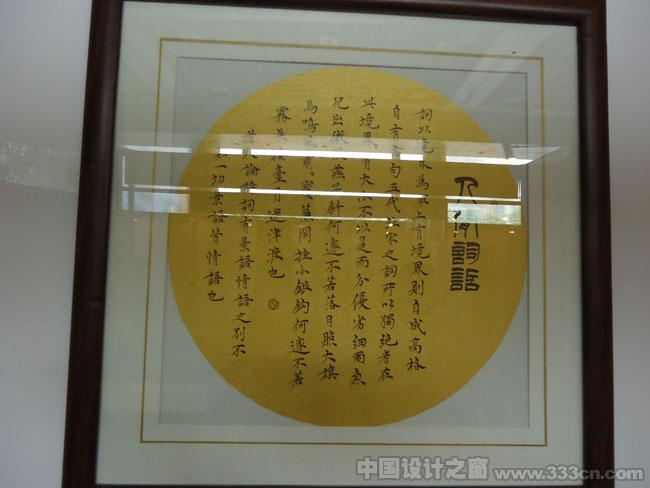 人間詞話
詞以境界為最上有境界則自成高格
自有名句五代北宋之詞所以獨絕者在
此境界有大小不以是而分優劣細雨魚
兒出微風燕子斜何遽不若落日照大旗
馬鳴風蕭〻寶簾閑挂小銀鉤何遽不若
霧失樓臺月迷津渡也
昔人論詩詞有景語情語之別不
知一切景語皆情語也
中国设计之窗 www.333cn.com